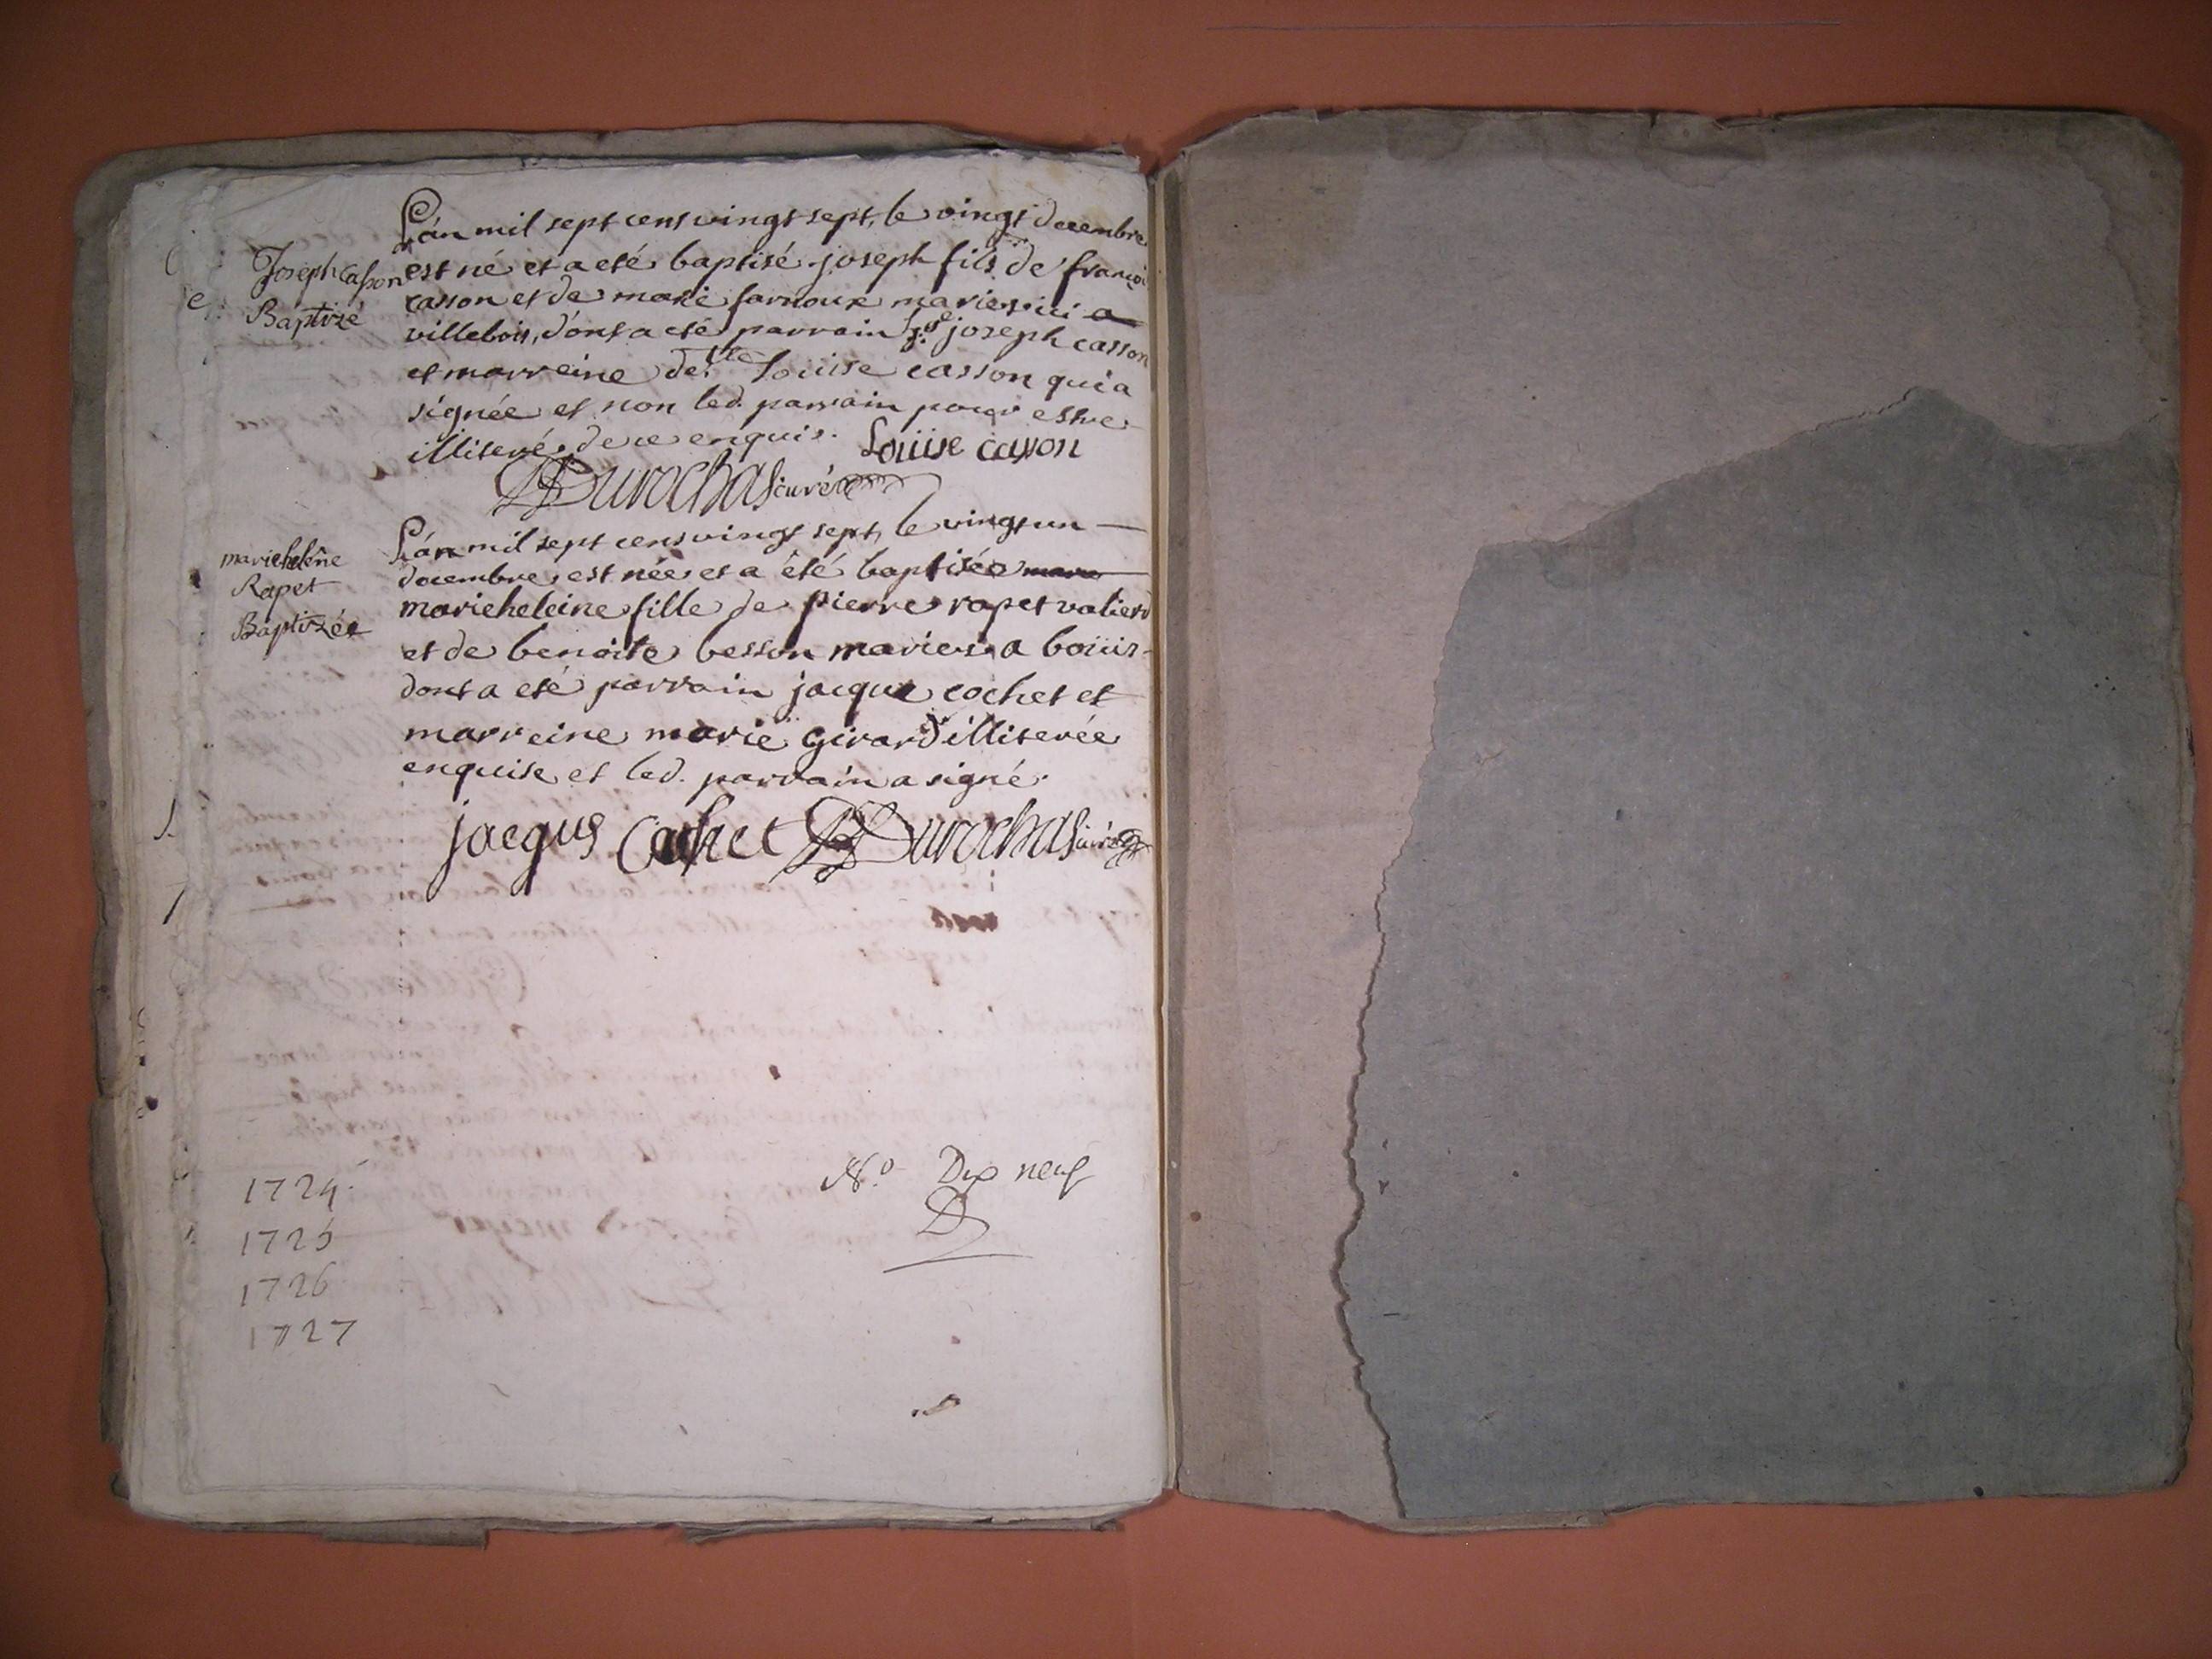 L'án mil sept cens vingt sept, le vingt decembre
Joseph Casson
Baptizé
est né et a eté baptisé joseph fils de françoi
casson et de marie farnoux mariés ici a
villebois, dont a eté parrain joseph casson
et marreine de.lle Loüise casson qui a
signée et non led. parrain pour estre
illiteré de ce enquis. Loüise casson
Durochas curé
L'án mil sept cens vingt sept, le vingt un
mariehelêne
Rapet
Baptizée
decembre est née et a été baptisée
marieheleine fille de pierre rapet valierd
et de benoite besson mariés a boüis
dont a eté parrain jacque cochet et
marreine marie Girard illiterée
enquise et led. parrain a signé.
jacque Cochet Durochas curé
N.o Dix neuf
1724
1725
1726
1727